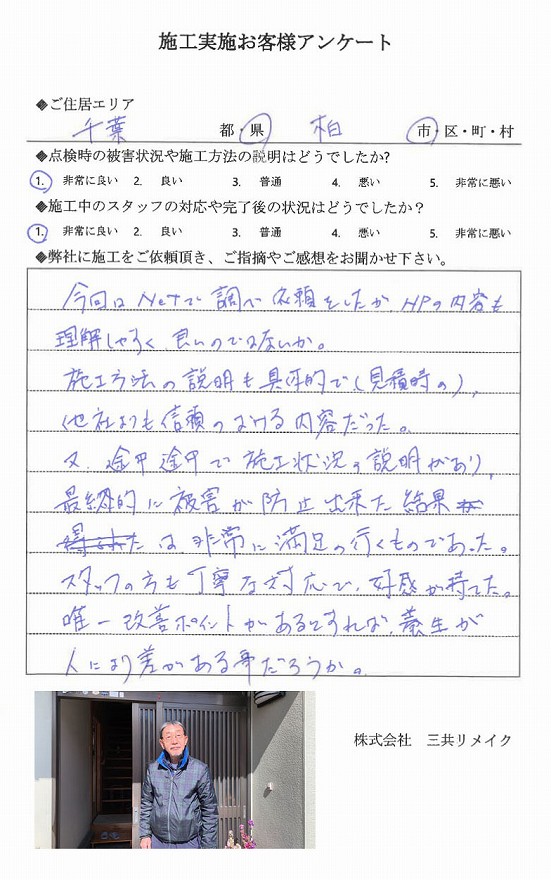 施工実施お客様アンケート
◆ご住居エリア
千葉 都・県 柏 市・区・町・村
◆点検時の被害状況や施工方法の説明はどうでしたか?
1. 非常に良い 2. 良い 3. 普通 4. 悪い 5. 非常に悪い
◆施工中のスタッフの対応や完了後の状況はどうでしたか？
1. 非常に良い 2. 良い 3. 普通 4. 悪い 5. 非常に悪い
◆弊社に施工をご依頼頂き、ご指摘やご感想をお聞かせ下さい。
今回はNetで調べ依頼をしたが、HPの内容も
理解しやすく、良いのではないか。
施工方法の説明も具体的で(見積時の)、
他社よりも信頼のおける内容だった。
又、途中途中で施工状況の説明があり、
最終的に被害が防止出来た結果
は非常に満足の行くものであった。
スタッフの方も丁寧な対応で、好感が持てた。
唯一改善ポイントがあるとすれば、養生が
人により差がある事だろうか。
株式会社 三共リメイク